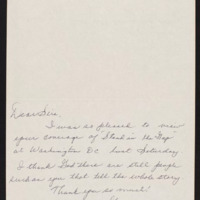 Dear Sirs,
I was so pleased to view
your coverage of Stand in the Gap
at Washington D.C. last Saturday
I think God there are still people
such as you that tell the whole story
Thank you so much!